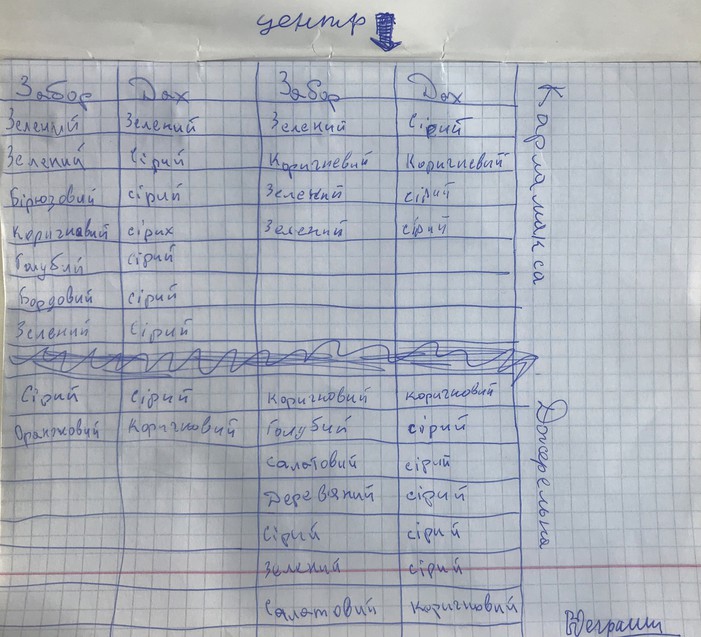 центр
Забор Дах Забор Дах
Зелений Зелений Зелений Сірий
Зелений Сірий Коричневий Коричневий
Бірюзовий сірий Зелений сірий
Коричновий сірих Зелений сірий
Голубий сірий
Бордовий сірий
Зелений Сірий
Карла макса
Сірий Сірий Коричновий коричновий
Оранжовий Коричновий Голубий сірий
Салатовий сірий
Дерев'яний сірий
Сірий сірий
Зелений сірий
Салатовий коричновий
Джерельна